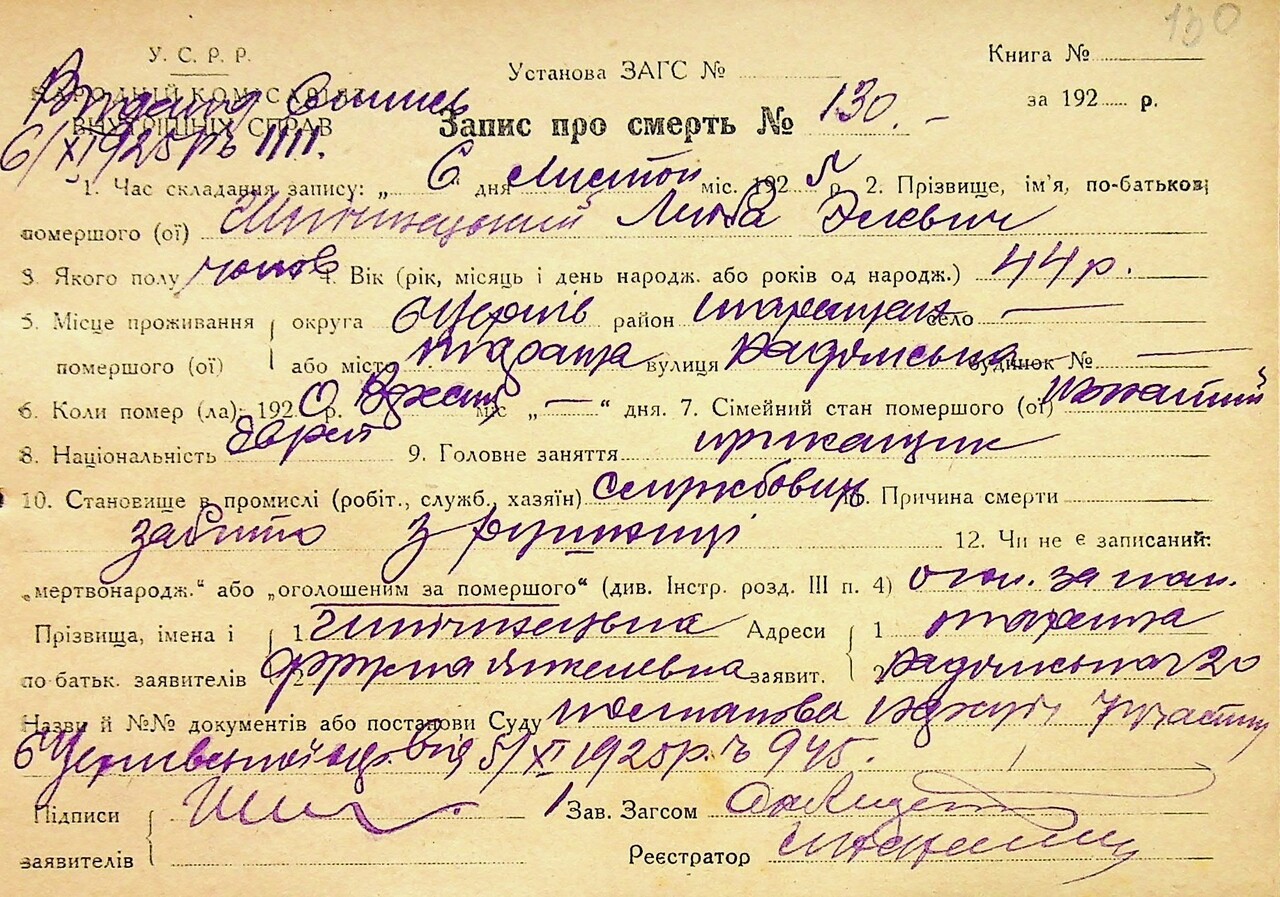 130
У. С. Р. Р.
НАРОДНІЙ КОМІСАРІЯТ
ВНУТРІШНІХ СПРАВ
6/XI 1925 р. № 1111.
Установа ЗАГС №
Книга №
за 192 р.
Запис про смерть № 130.
1. Час складання запису: „ 6 “ дня Листоп міс. 192 5 р. 2. Прізвище, ім'я, по-батькові
помершого (ої)
3. Якого полу чолов 4. Вік (рік, місяць і день народж. або років од народж.) 44 р.
5. Місце проживання округа Б Церків район Таращан село —
помершого (ої) або місто Тараща вулиця будинок № —
6. Коли помер (ла): 192 0 р. міс „ — “ дня. 7. Сімейний стан помершого (ої) жонатий
8. Національність Єврей 9. Головне заняття прикащик
10. Становище в промислі (робіт., служб., хазяїн) Службовець Причина смерти
забито з рушниці 12. Чи не є записаний:
„мертвонародж.“ або „оголошеним за помершого“ (див. Інстр. розд. III п. 4) огол. за пом.
Прізвища, імена і 1. Адреси 1 Тараща
по батьк. заявителів 2 заявит. 2 20
Назви й №№ документів або постанови Суду постанова Нарсуду 7 участку
Б Церківської окр. від 5/XI 1925 р. № 945.
Підписи Зав. Загсом
заявителів Реєстратор